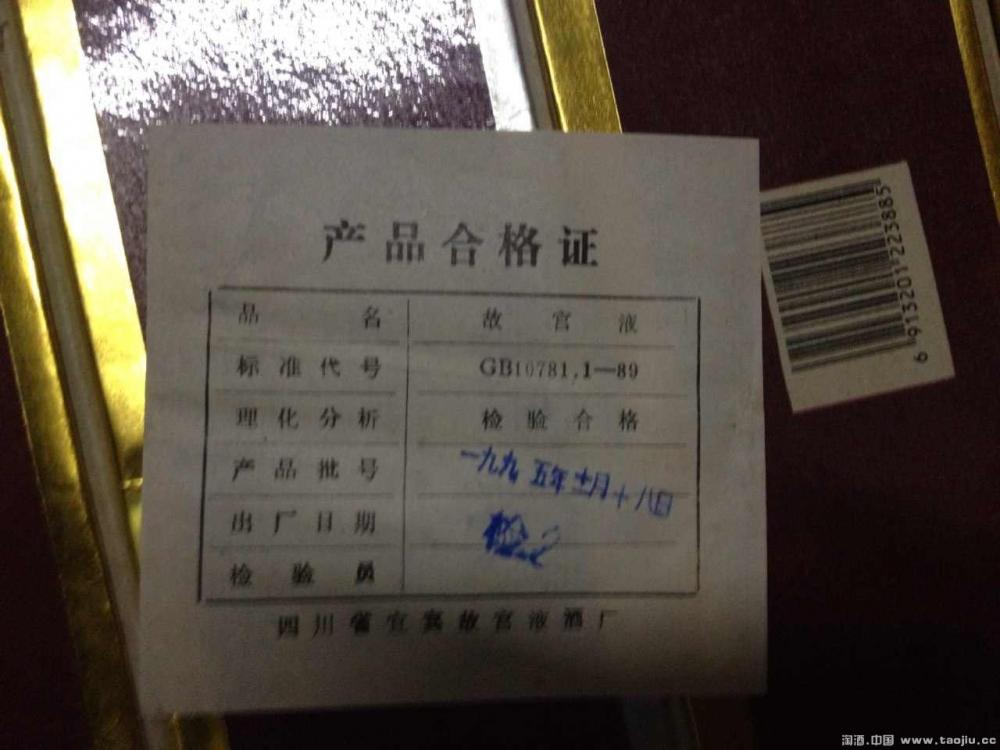 产品合格证
品名 故宫液
标准代号 GB10781.1—89
理化分析 检验合格
产品批号 一九九五年十一月十八日
出厂日期 检2
检验员
四川省宜宾故宫液酒厂
6 913201 223885
淘酒.中国 www.taojiu.cc